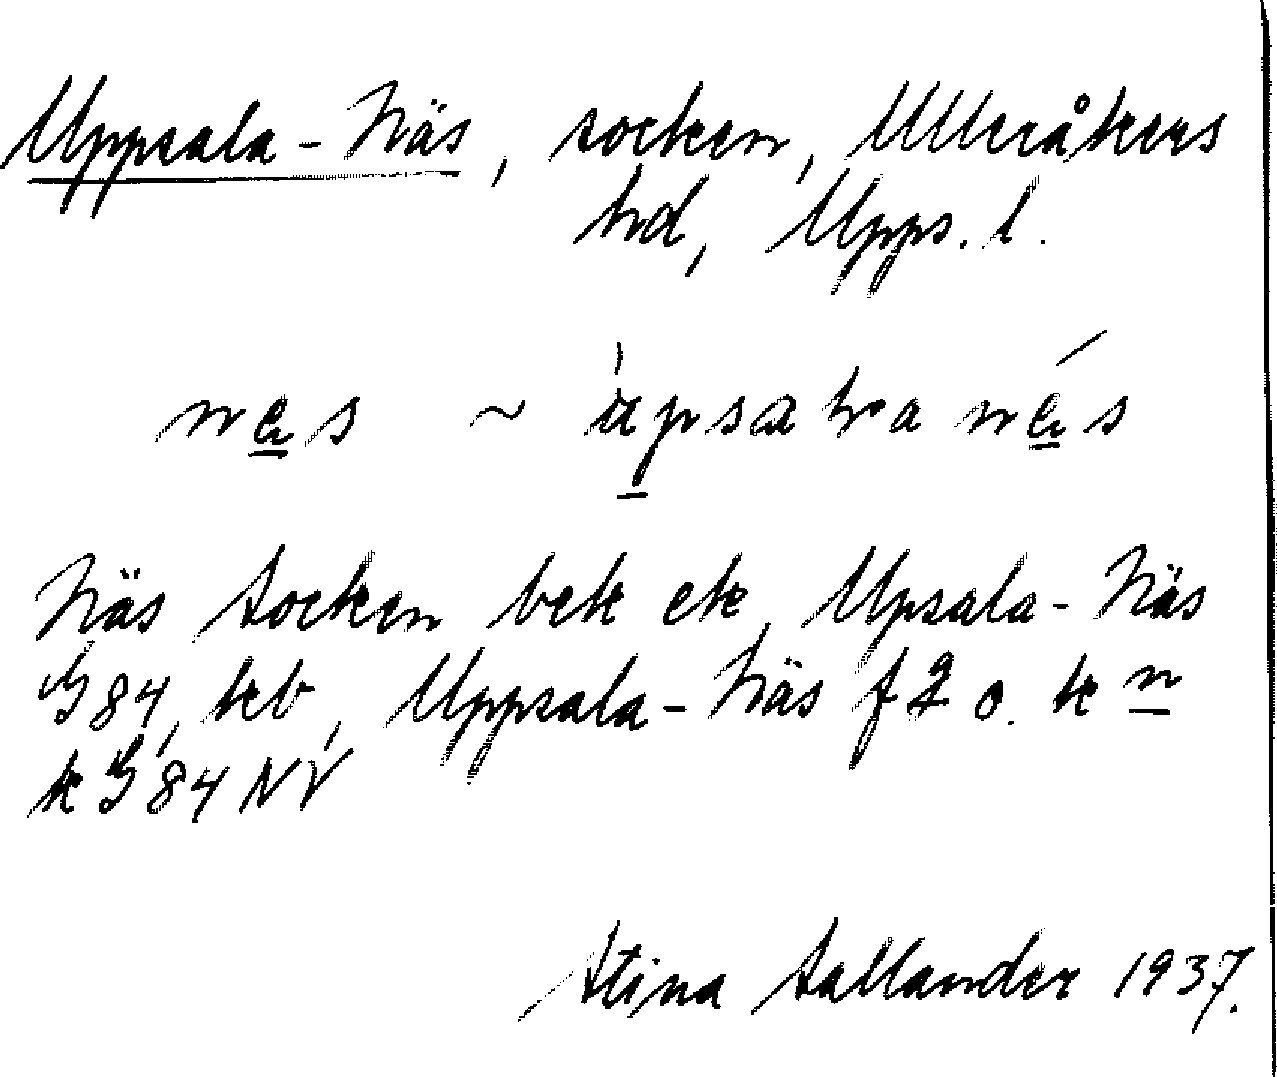 Uppsala-Näs, socken, Ulleråkers
hd, Upps. l.
næs ~ ùpsala næ´s
Näs Socken bek ek, Upsala-Näs
G84, kb, Uppsala-Näs f2 o. k n
k G84 NV
Stina Sallander 1937.